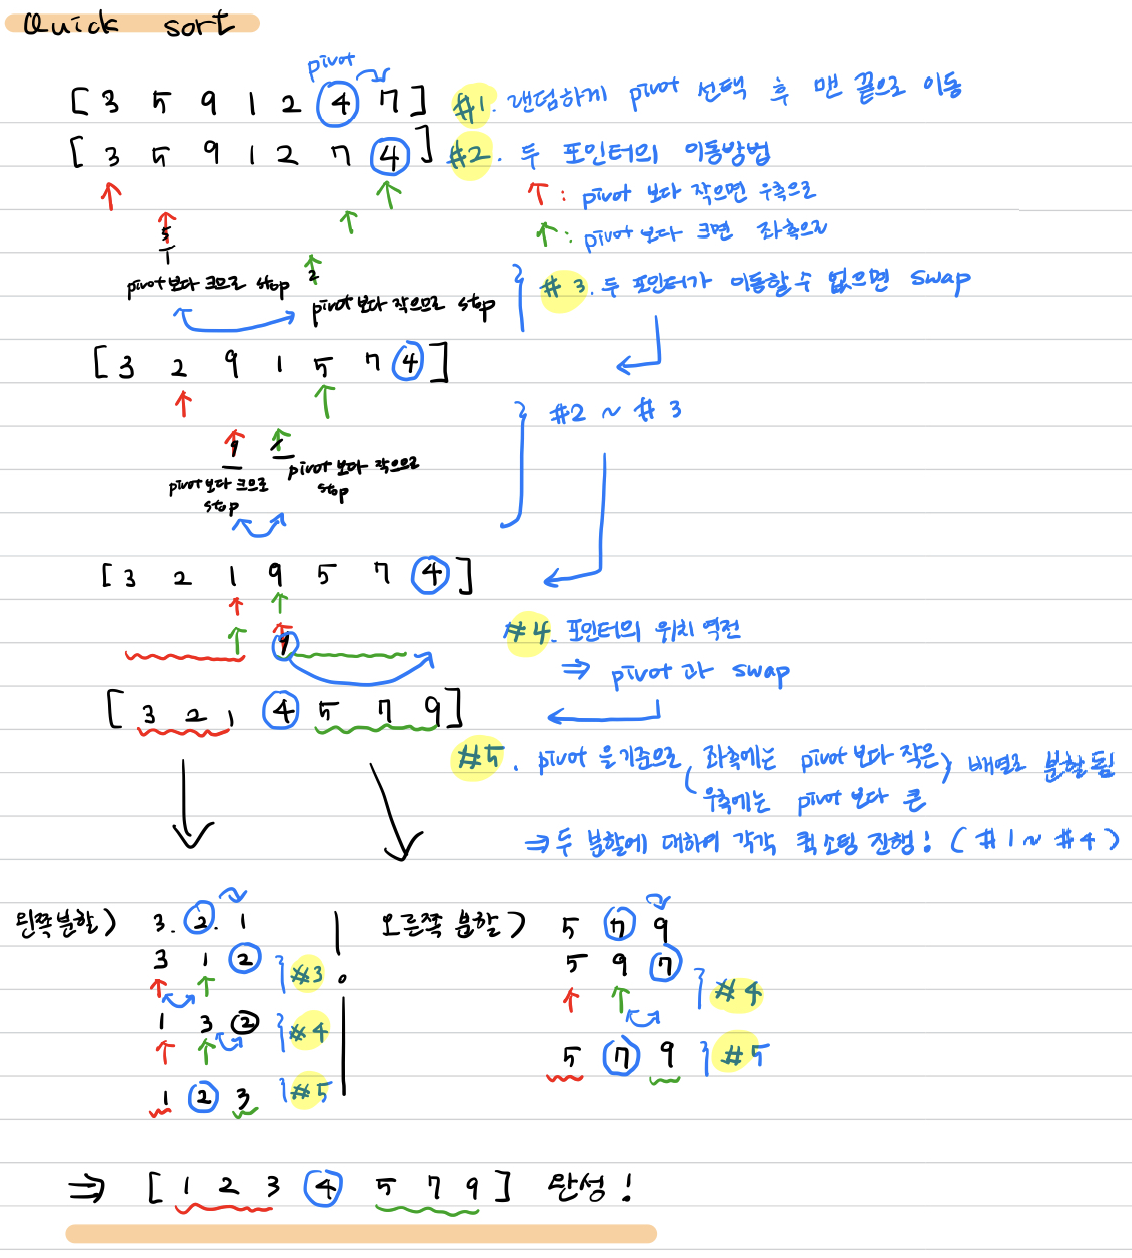 Quick sort
pivot
[ 3 5 9 1 2 4 7 ] #1. 랜덤하게 pivot 선택 후 맨 끝으로 이동
[ 3 5 9 1 2 7 4 ] #2. 두 포인터의 이동방법
↑ : pivot 보다 작으면 우측으로
↑ : pivot 보다 크면 좌측으로
5
2
pivot 보다 크므로 stop
pivot 보다 작으므로 stop
#3. 두 포인터가 이동할 수 없으면 swap
[ 3 2 9 1 5 7 4 ]
#2 ~ #3
9 1
pivot 보다 크으로 stop
pivot 보다 작으므로 stop
[ 3 2 1 9 5 7 4 ]
#4. 포인터의 위치 역전
⇒ pivot 과 swap
[ 3 2 1 4 5 7 9 ]
#5. pivot 을 기준으로 ( 좌측에는 pivot 보다 작은 ) 배열로 분할됨
우측에는 pivot 보다 큰
⇒ 두 분할에 대하여 각각 퀵소팅 진행! (#1 ~ #4)
왼쪽분할) 3. 2. 1
3 1 2 #3
1 3 2 #4
1 2 3 #5
오른쪽 분할) 5 7 9
5 9 7 #4
5 7 9 #5
⇒ [ 1 2 3 4 5 7 9 ] 완성!